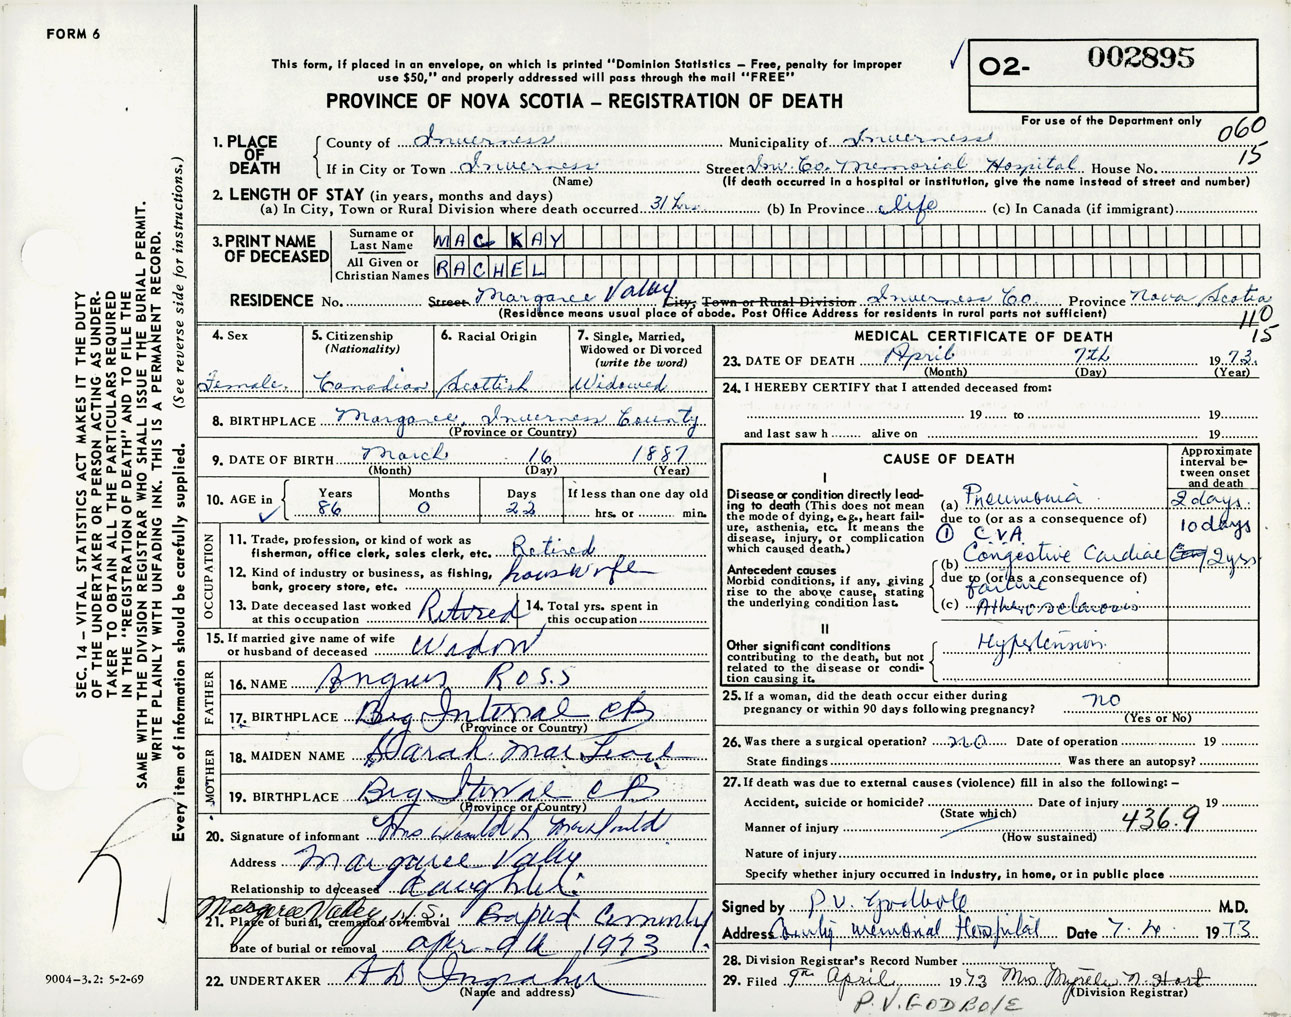 FORM 6
This form, if placed in an envelope, on which is printed "Dominion Statistics – Free, penalty for improper
use $50," and properly addressed will pass through the mail "FREE"
PROVINCE OF NOVA SCOTIA – REGISTRATION OF DEATH
✓ 02- 002895
For use of the Department only
060
15
1. PLACE OF DEATH
County of Inverness Municipality of Inverness
If in City or Town Inverness (Name) Street Inv. Co. Memorial Hospital House No.
(If death occurred in a hospital or institution, give the name instead of street and number)
2. LENGTH OF STAY (in years, months and days)
(a) In City, Town or Rural Division where death occurred 31 hrs. (b) In Province life (c) In Canada (if immigrant)
3. PRINT NAME OF DECEASED
Surname or Last Name MAC KAY
All Given or Christian Names RACHEL
RESIDENCE No. Street Margaree Valley City, Town or Rural Division Inverness Co. Province Nova Scotia
(Residence means usual place of abode. Post Office Address for residents in rural parts not sufficient)
110
15
4. Sex Female
5. Citizenship (Nationality) Canadian
6. Racial Origin Scottish
7. Single, Married, Widowed or Divorced (write the word) Widowed
8. BIRTHPLACE Margaree, Inverness County
(Province or Country)
9. DATE OF BIRTH March 16 1887
(Month) (Day) (Year)
10. AGE in Years 86 Months 0 Days 22 If less than one day old hrs. or min.
✓
OCCUPATION
11. Trade, profession, or kind of work as fisherman, office clerk, sales clerk, etc. Retired
12. Kind of industry or business, as fishing, bank, grocery store, etc. housewife
13. Date deceased last worked at this occupation Retired 14. Total yrs. spent in this occupation
15. If married give name of wife or husband of deceased Widow
FATHER
16. NAME Angus Ross
17. BIRTHPLACE Big Interval CB
(Province or Country)
MOTHER
18. MAIDEN NAME Sarah MacLeod
19. BIRTHPLACE Big Iterval CB
(Province or Country)
20. Signature of informant Mrs
Address Margaree Valley
Relationship to deceased daughter
Margaree Valley, N.S.
21. Place of burial, cremation or removal Baptist
Date of burial or removal Apr 9th 1973
22. UNDERTAKER A D Ingraham
(Name and address)
MEDICAL CERTIFICATE OF DEATH
23. DATE OF DEATH April 7th 1973
(Month) (Day) (Year)
24. I HEREBY CERTIFY that I attended deceased from:
19 to 19
and last saw h alive on 19
CAUSE OF DEATH
Approximate interval between onset and death
I
Disease or condition directly leading to death (This does not mean the mode of dying, e.g., heart failure, asthenia, etc. It means the disease, injury, or complication which caused death.)
(a) Pneumonia 2 days.
due to (or as a consequence of)
① CVA 10 days
Antecedent causes
Morbid conditions, if any, giving rise to the above cause, stating the underlying condition last.
(b) Congestive Cardiac failure 2 yrs
due to (or as a consequence of)
(c) Atherosclerosis
II
Other significant conditions contributing to the death, but not related to the disease or condition causing it.
Hypertension
25. If a woman, did the death occur either during pregnancy or within 90 days following pregnancy? no
(Yes or No)
26. Was there a surgical operation? no Date of operation 19
State findings Was there an autopsy?
27. If death was due to external causes (violence) fill in also the following: –
Accident, suicide or homicide? Date of injury 19
(State which)
Manner of injury 436.9
(How sustained)
Nature of injury
Specify whether injury occurred in industry, in home, or in public place
Signed by P.V. Godbole M.D.
Address County Memorial Hospital Date 7.4. 1973
28. Division Registrar's Record Number
29. Filed 9th April 1973 Mrs Myrtle N. Hart
(Division Registrar)
P.V. GODBOLE
SEC. 14 – VITAL STATISTICS ACT MAKES IT THE DUTY
OF THE UNDERTAKER OR PERSON ACTING AS UNDER-
TAKER TO OBTAIN ALL THE PARTICULARS REQUIRED
IN THE "REGISTRATION OF DEATH" AND TO FILE THE
SAME WITH THE DIVISION REGISTRAR WHO SHALL ISSUE THE BURIAL PERMIT.
WRITE PLAINLY WITH UNFADING INK. THIS IS A PERMANENT RECORD.
Every item of information should be carefully supplied. (See reverse side for instructions.)
9004-3.2: 5-2-69